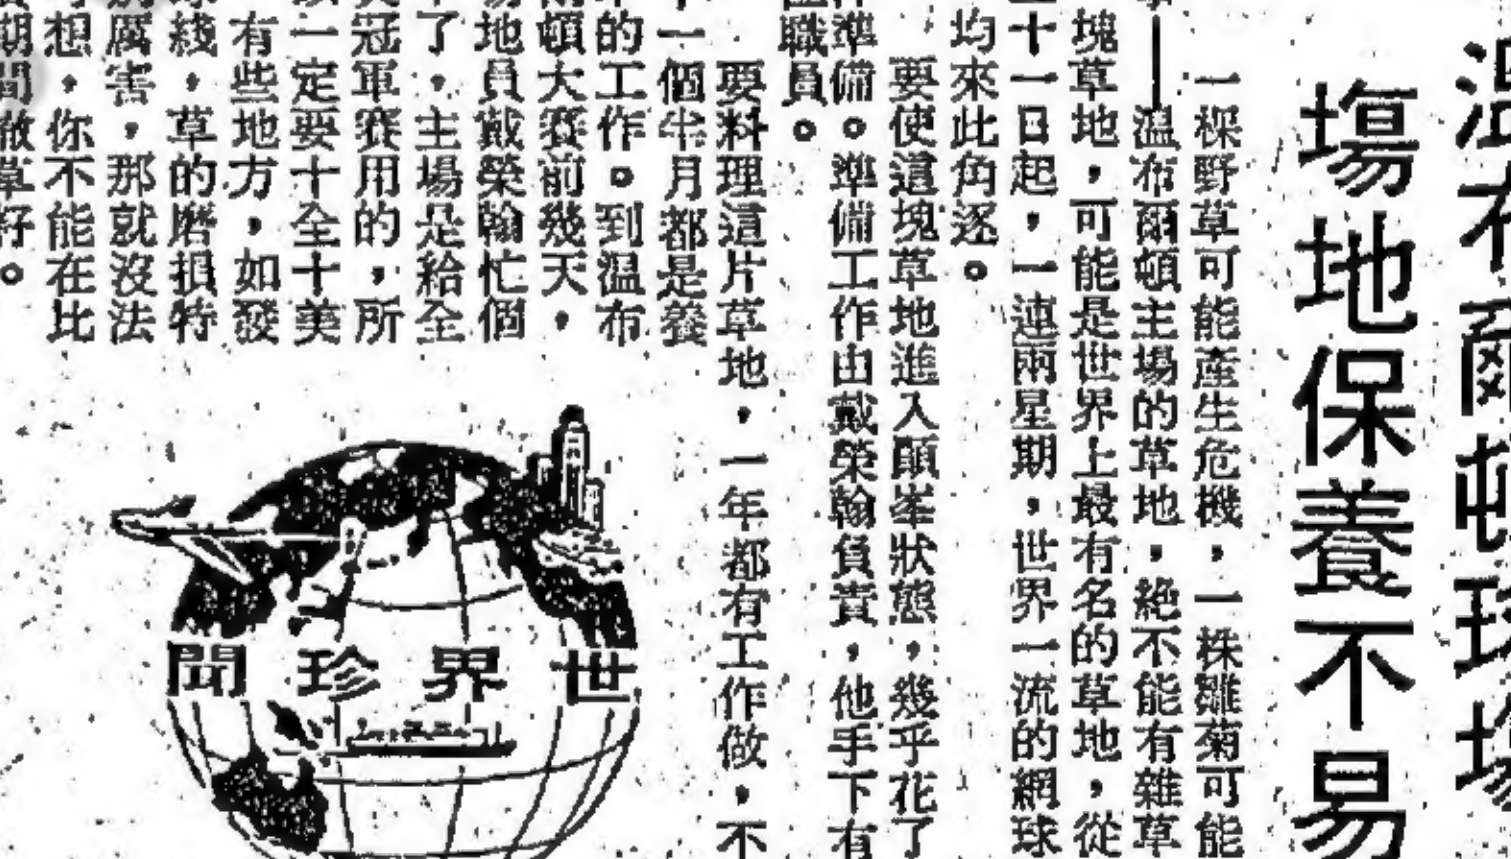 温布爾頓球場
場地保養不易
一棵野草可能產生危機，一株雛菊可能
——温布爾頓主場的草地，絶不能有雜草
塊草地，可能是世界上最有名的草地，從
十一日起，一連兩星期，世界一流的網球
均來此角逐。
要使這塊草地進入顛峯狀態，幾乎花了
準備。準備工作由戴榮翰負責，他手下有
職員。
要料理這片草地，一年都有工作做，不
一個半月都是養
的工作。到温布
頓大賽前幾天，
地員戴榮翰忙個
了，主場是給全
冠軍賽用的，所
一定要十全十美
有些地方，如發
綫，草的磨損特
厲害，那就沒法
想，你不能在比
期間撒草籽。
世界珍聞